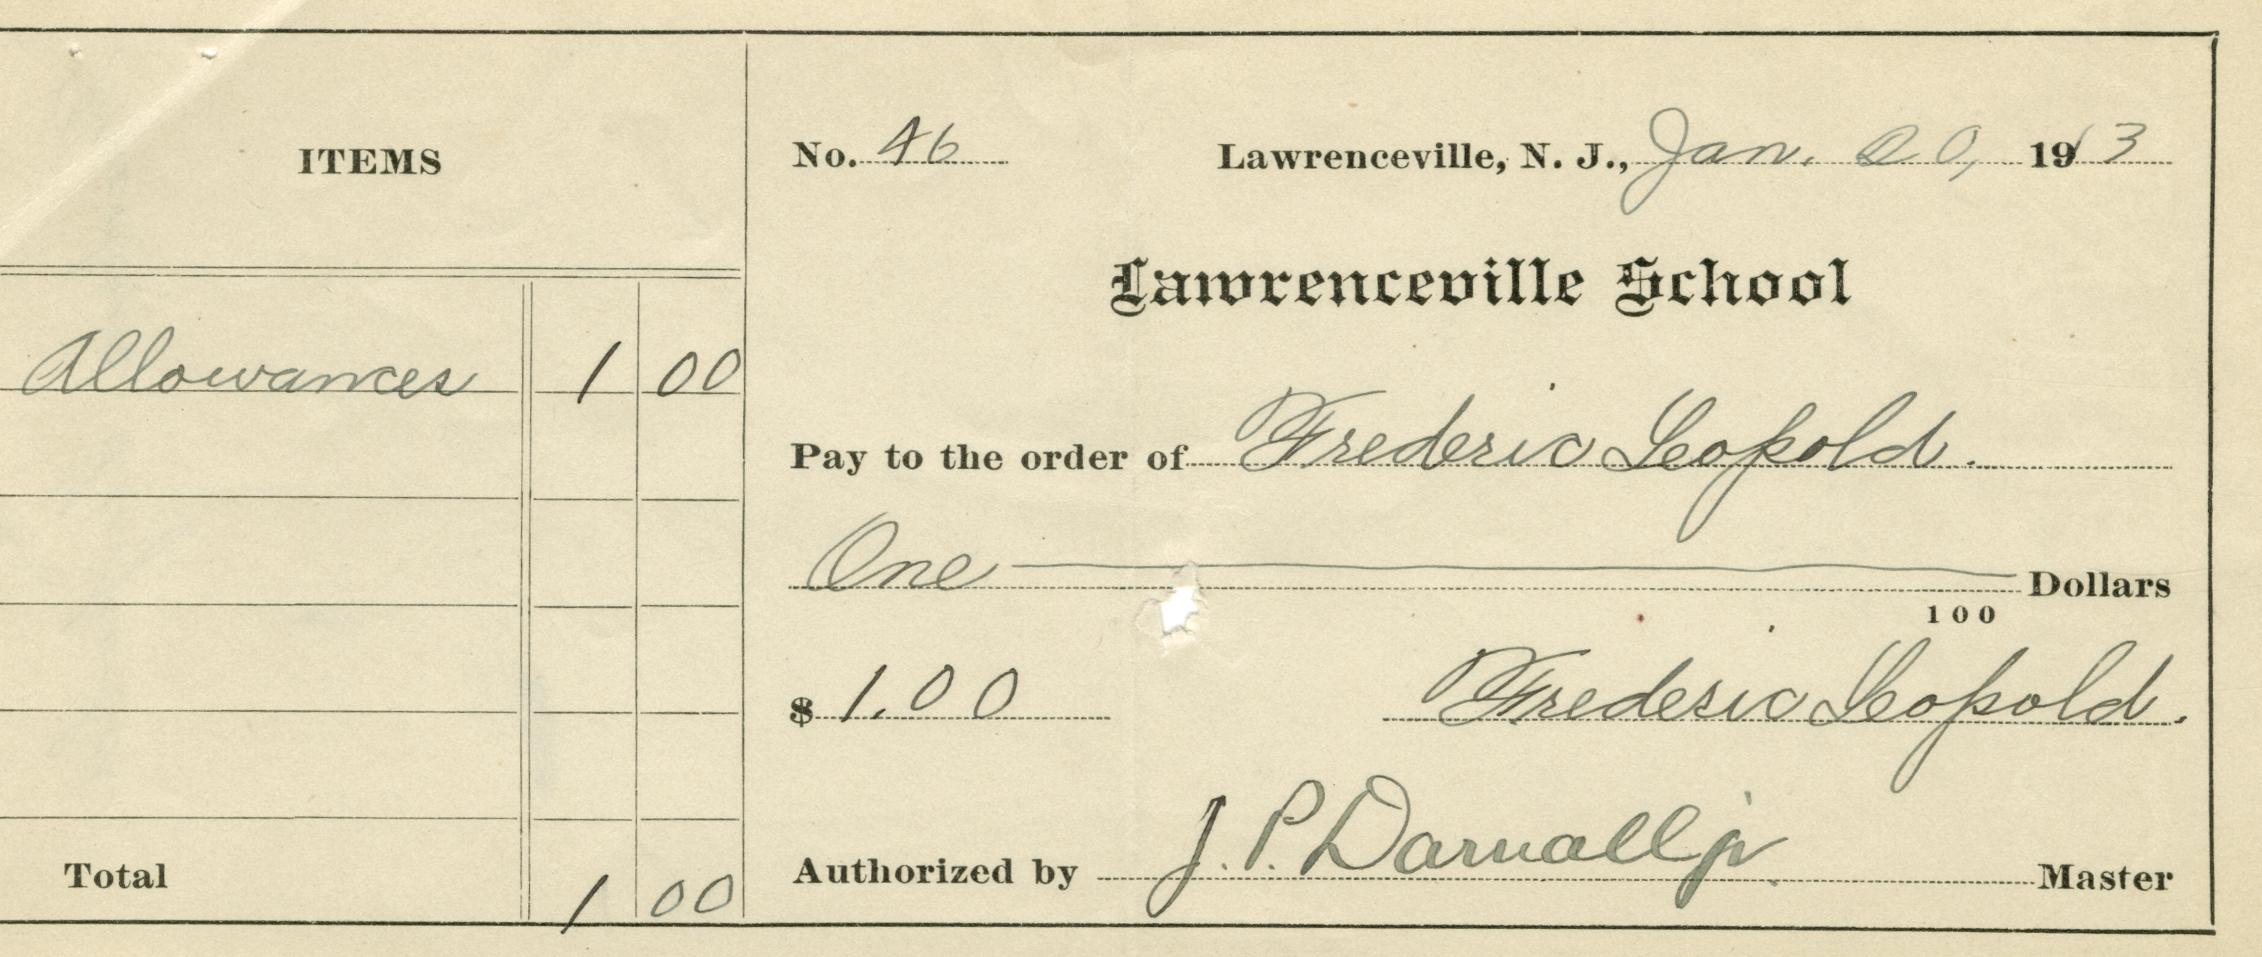 ITEMS
Allowances 1 00
Total 1 00
No. 46 Lawrenceville, N. J., Jan. 20, 1913
Lawrenceville School
Pay to the order of Frederic Leopold.
One Dollars
100
$ 1.00 Frederic Leopold.
Authorized by J. P. Darnall jr. Master